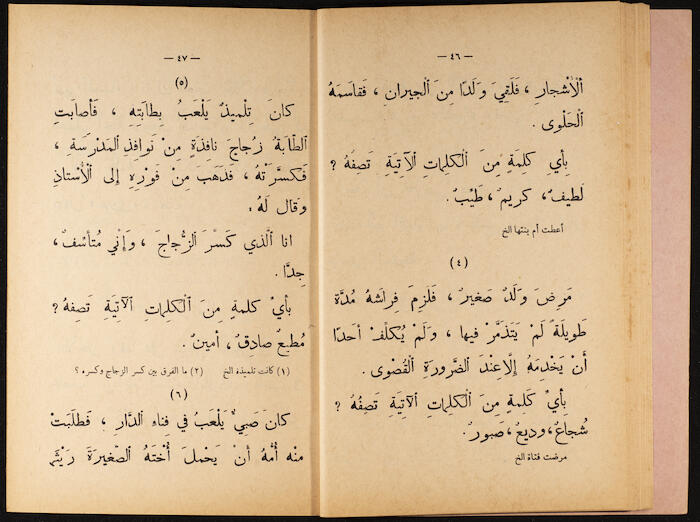 — ٤٦ —
ٱلْأَشْجارِ ، فَلَقِيَ وَلَدًا مِنَ ٱلْجيرانِ ، فَقاسَمَهُ
ٱلْحَلْوى .
بِأَي كَلِمَةٍ مِنَ ٱلْكَلِماتِ ٱلْآتِيَةِ تَصِفُهُ ؟
لَطيفٌ ، كَريمٌ ، طَيِّبٌ .
أعطت أم بنتها الخ
(٤)
مَرِضَ وَلَدٌ صَغيرٌ ، فَلَزِمَ فِراشَهُ مُدَّة
طَويلَةً لَمْ يَتَذَمَّرْ فيها ، وَلَمْ يُكَلِّفْ أَحَدًا
أَنْ يَخْدِمَهُ إِلاّ عِنْدَ الضَّرورَةِ القُصْوى .
بِأَيِّ كَلِمَةٍ مِنَ ٱلْكَلِماتِ ٱلْآتِيَةِ تَصِفُهُ ؟
شُجاعٌ ، وَديعٌ ، صَبورٌ .
مرضت فتاة الخ
— ٤٧ —
(٥)
كانَ تِلْميذٌ يَلْعَبُ بِطابَتِهِ ، فَأَصابَتِ
الطّابَةُ زُجاجَ نافِذَةٍ مِنْ نَوافِذِ ٱلْمَدْرَسَةِ ،
فَكَسَّرَتْهُ ، فَذَهَبَ مِنْ فَوْرِهِ إِلى ٱلْأُسْتاذِ
وَقالَ لَهُ :
انا ٱلَّذي كَسَّرَ ٱلزُّجاجَ ، وَإِنّي مُتَأَسِّفٌ ،
جِدًّا .
بِأَيِّ كَلِمةٍ مِنَ ٱلْكَلِماتِ ٱلْآتِيَةِ تَصِفُهُ ؟
مُطيعٌ صادِقٌ ، أَمينٌ .
(١) كانت تلميذة الخ (٢) ما الفرق بين كسر الزجاج وكسره ؟
(٦)
كانَ صَبِيٌّ يَلْعَبُ في فِناءِ ٱلدَّارِ ، فَطَلَبَتْ
مِنْه أُمُّهُ أَنْ يَحْمِلَ أُخْتَهُ ٱلصَّغيرَةَ رَيْثَم